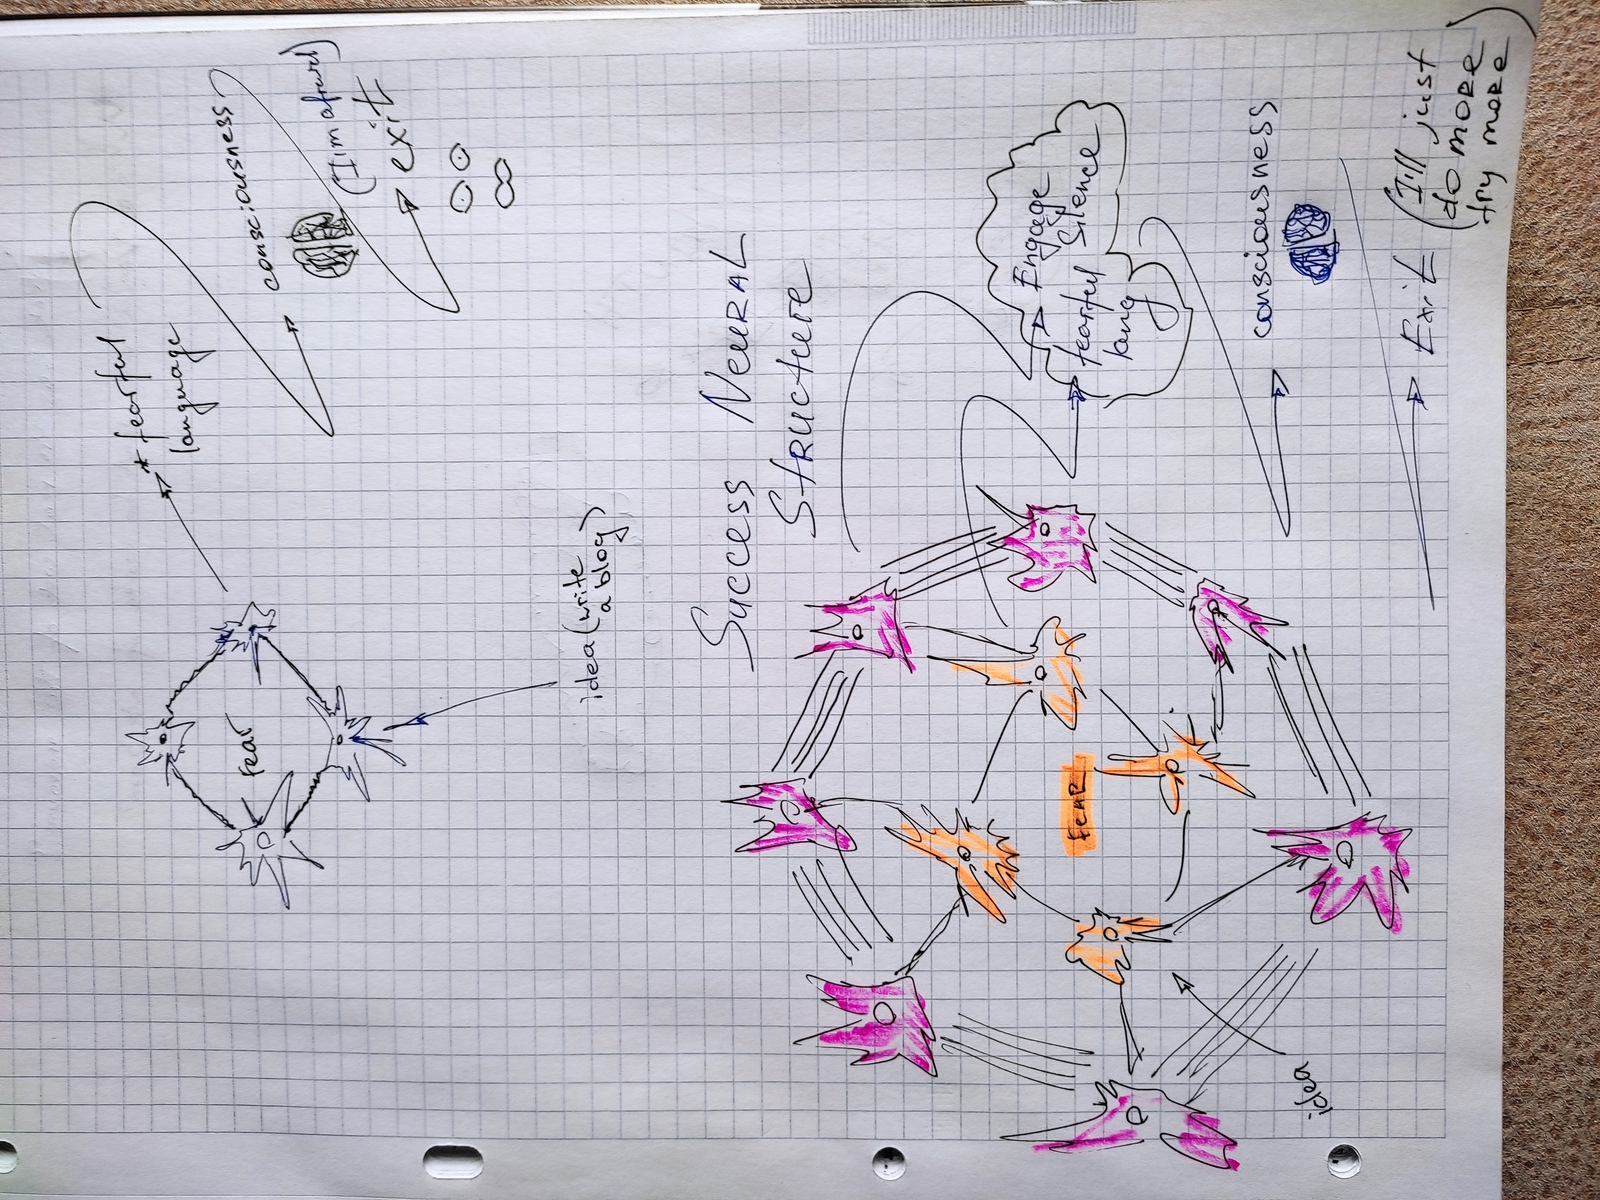 * fearful
language
Fear
consciousness
(I'm afraid)
exit
idea (write
a blog)
Success Neural
Structure
Engage
Silence
fearful
lang
Fear
idea
consciousness
Exit (I'll just
do more
try more)